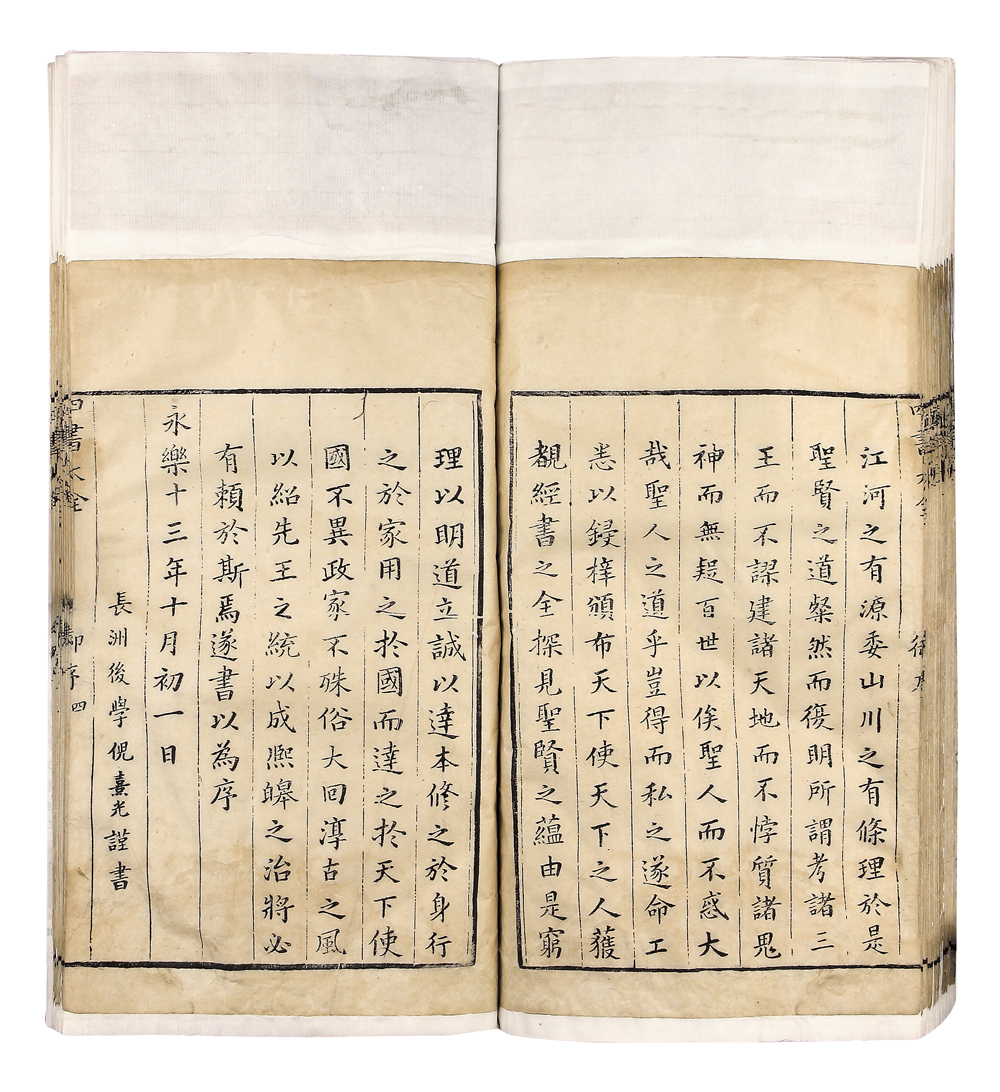 江河之有源委山川之有條理於是
聖賢之道粲然而復明所謂考諸三
王而不謬建諸天地而不悖質諸鬼
神而無疑百世以俟聖人而不惑大
哉聖人之道乎豈得而私之遂命工
悉以鋟梓頒布天下使天下之人獲
覩經書之全探見聖賢之蘊由是窮
理以明道立誠以達本修之於身行
之於家用之於國而達之於天下使
國不異政家不殊俗大回淳古之風
以紹先王之統以成熈皞之治將必
有賴於斯焉遂書以為序
永樂十三年十月初一日
長洲後學倪熹光謹書
四書大全
御序
四